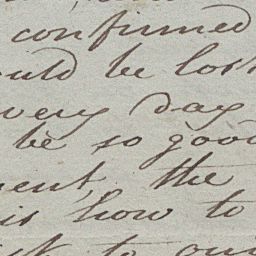 confirmed
ould be lost
very day
be so good
ment, the
is how to
to